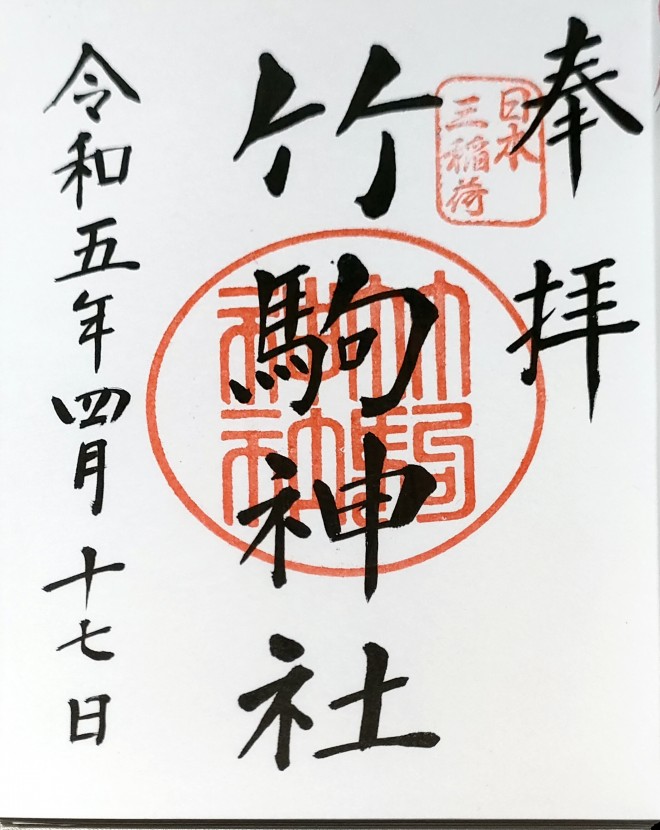 奉拝
日本
三稲荷
竹駒神社
竹駒
神社
令和五年四月十七日